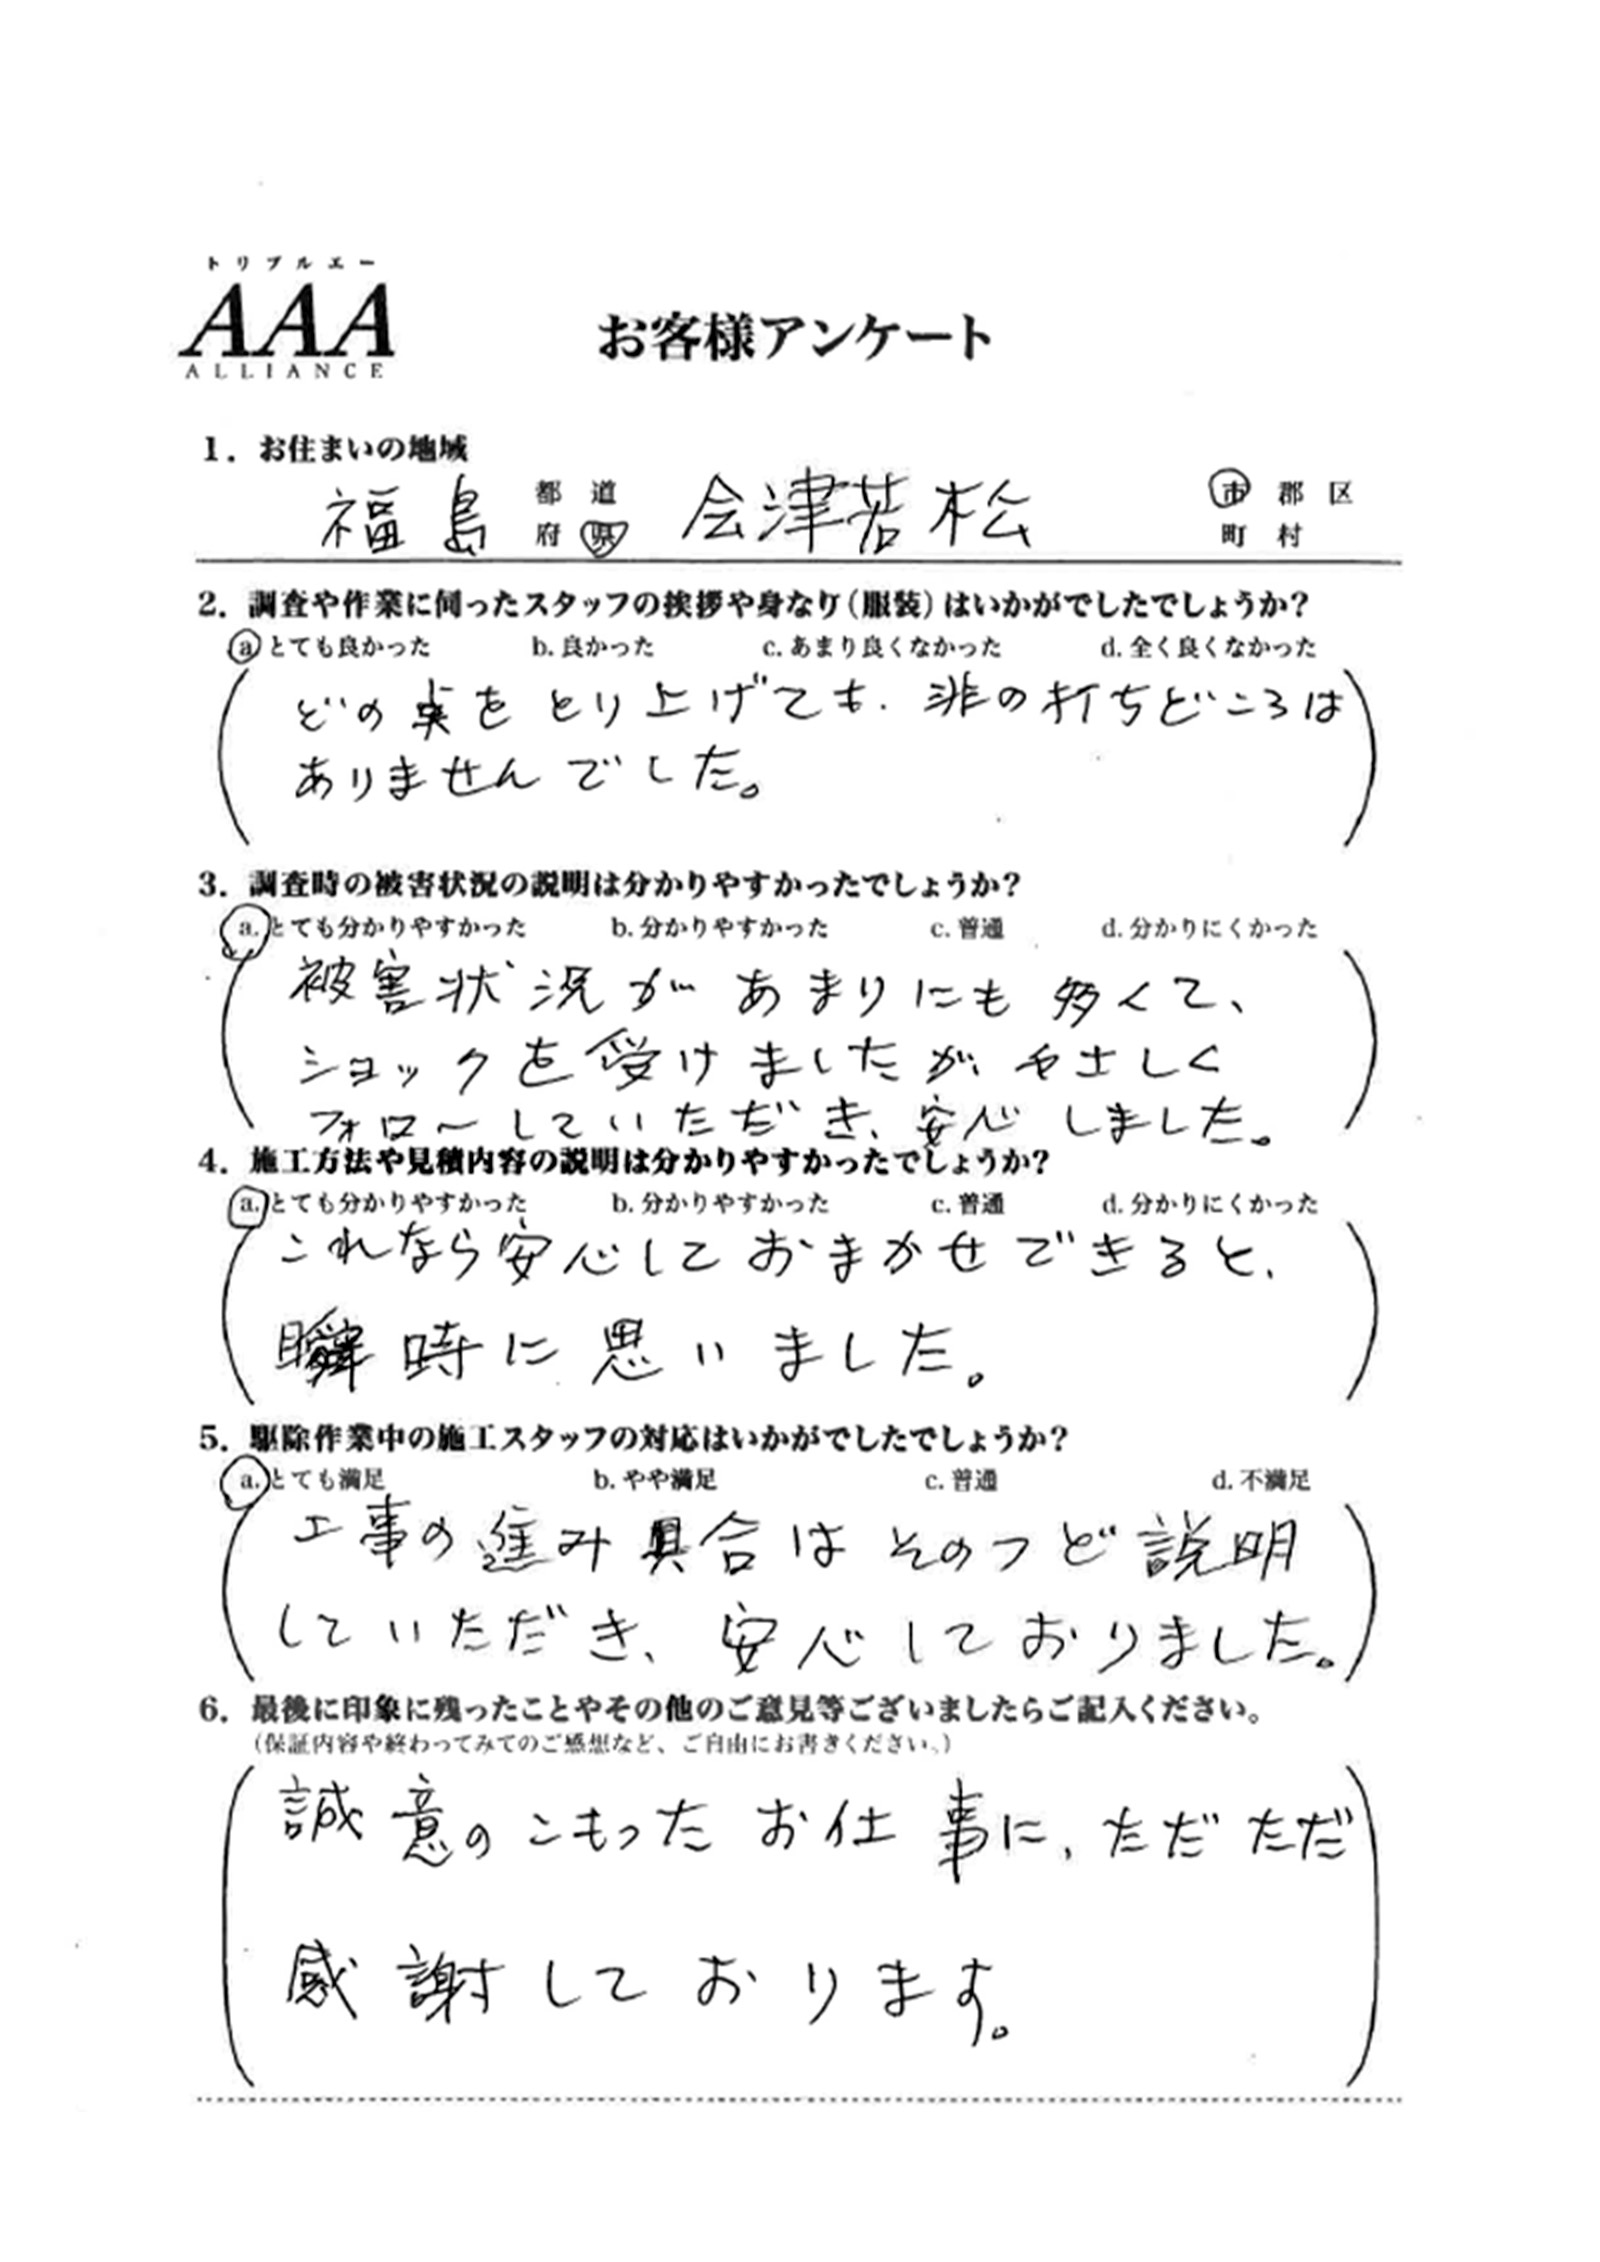 トリプルエー
AAA
ALLIANCE
お客様アンケート
1. お住まいの地域
福島 都 道 府 県 会津若松 市 郡 区 町 村
2. 調査や作業に伺ったスタッフの挨拶や身なり(服装)はいかがでしたでしょうか?
a とても良かった b. 良かった c. あまり良くなかった d. 全く良くなかった
どの点をとり上げても、非の打ちどころは
ありませんでした。
3. 調査時の被害状況の説明は分かりやすかったでしょうか?
a. とても分かりやすかった b. 分かりやすかった c. 普通 d. 分かりにくかった
被害状況があまりにも多くて、
ショックを受けましたが、やさしく
フォローしていただき、安心しました。
4. 施工方法や見積内容の説明は分かりやすかったでしょうか?
a. とても分かりやすかった b. 分かりやすかった c. 普通 d. 分かりにくかった
これなら安心しておまかせできると、
瞬時に思いました。
5. 駆除作業中の施工スタッフの対応はいかがでしたでしょうか?
a. とても満足 b. やや満足 c. 普通 d. 不満足
工事の進み具合はそのつど説明
していただき、安心しておりました。
6. 最後に印象に残ったことやその他のご意見等ございましたらご記入ください。
(保証内容や終わってみてのご感想など、ご自由にお書きください。)
誠意のこもったお仕事に、ただただ
感謝しております。